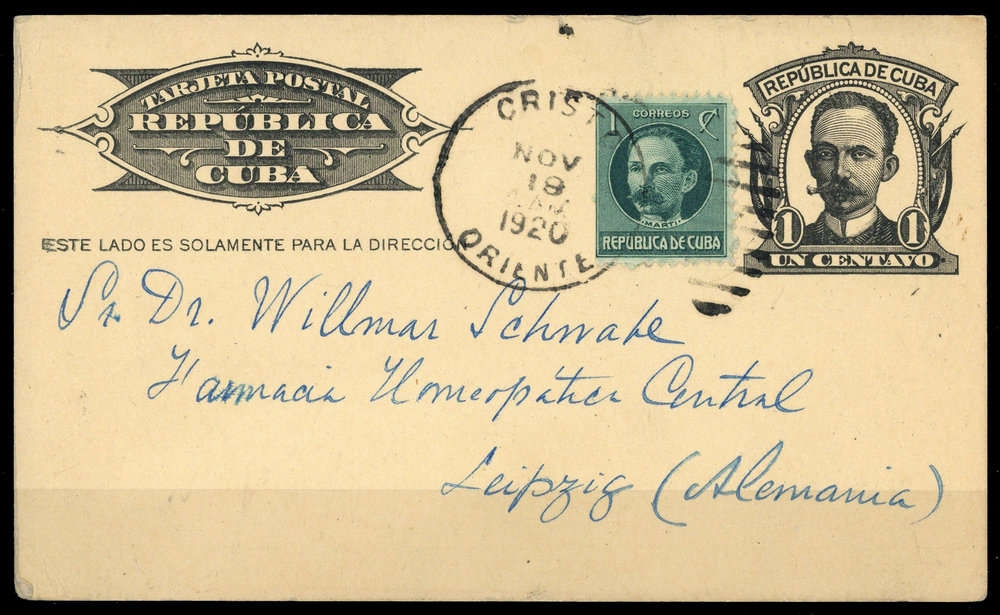 TARJETA POSTAL
REPÚBLICA
DE
CUBA
ESTE LADO ES SOLAMENTE PARA LA DIRECCIÓN
CRISTI
NOV
18
AM
1920
ORIENTE
1 CORREOS ¢
MARTI
REPÚBLICA DE CUBA
REPÚBLICA DE CUBA
1 1
UN CENTAVO
Sr. Dr. Willmar Schwabe
Farmacia Homeopática Central
Leipzig (Alemania)